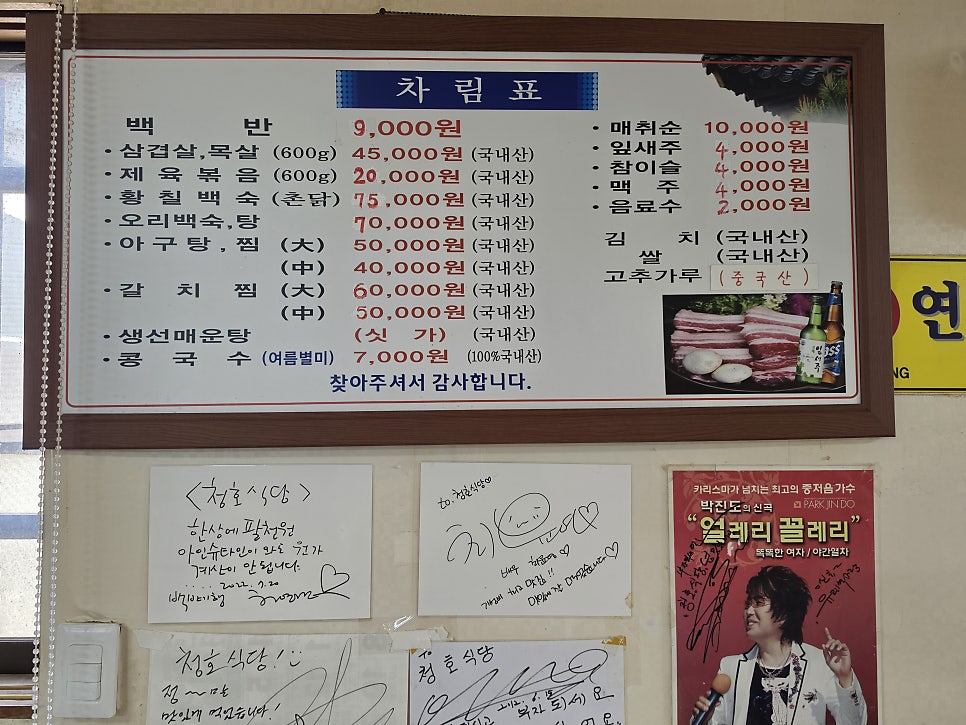 차림표
백 반 9,000원
· 삼겹살,목살 (600g) 45,000원 (국내산)
· 제육볶음 (600g) 20,000원 (국내산)
· 황칠백숙 (촌닭) 75,000원 (국내산)
· 오리백숙,탕 70,000원 (국내산)
· 아구탕,찜 (大) 50,000원 (국내산)
(中) 40,000원 (국내산)
· 갈치찜 (大) 60,000원 (국내산)
(中) 50,000원 (국내산)
· 생선매운탕 (싯가) (국내산)
· 콩국수 (여름별미) 7,000원 (100%국내산)
찾아주셔서 감사합니다.
· 매취순 10,000원
· 잎새주 4,000원
· 참이슬 4,000원
· 맥주 4,000원
· 음료수 2,000원
김치 (국내산)
쌀 (국내산)
고추가루 (중국산)
잎새주
연
NG
<청호식당>
한상에 팔천원
아인슈타인이 와도 원가
계산이 안됩니다.
2022. 7.20
백반기행
to. 청호식당♡
배우
카리스마가 넘치는 최고의 중저음 가수
박진도의 신곡 PARK JIN DO
"얼레리 꼴레리"
똑똑한 여자 / 야간열차
청호식당!
정~말
맛있게 먹었습니다!
to
청호식당
부자 되세요